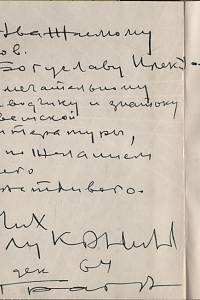 Уважаемому
ов.
Богуславу Илек
мечательному
водчику и знатоку
ветской
итературы,
по
его
стливого.
Мих
Луканин
дек 64
Прага